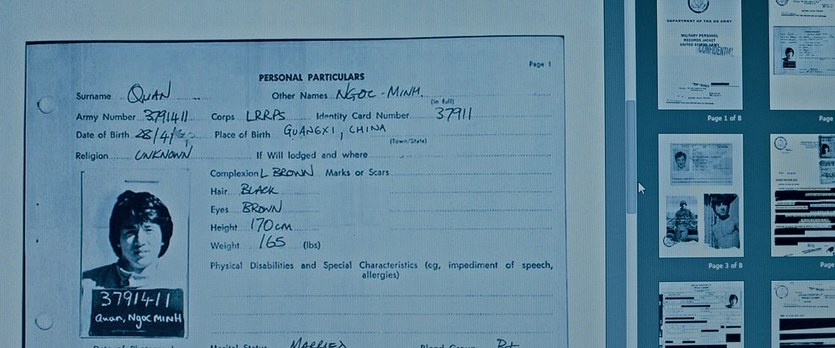 Page 1
PERSONAL PARTICULARS
Surname QUAN Other Names NGOC-MINH.
(in full)
Army Number 3791411 Corps LRRPS Identity Card Number 37911
Date of Birth 28/4/ Place of Birth GUANGXI, CHINA
(Town/State)
Religion UNKNOWN If Will lodged and where
Complexion L BROWN Marks or Scars
Hair BLACK
Eyes BROWN
Height 170cm
Weight 165 (lbs)
Physical Disabilities and Special Characteristics (eg, impediment of speech, allergies)
3791411
Quan, Ngoc MINH
Marital Status MARRIED
DEPARTMENT OF THE US ARMY
MILITARY PERSONNEL
RECORDS JACKET
UNITED STATES ARMY
CONFIDENTIAL
Page 1 of 8
Page 3 of 8